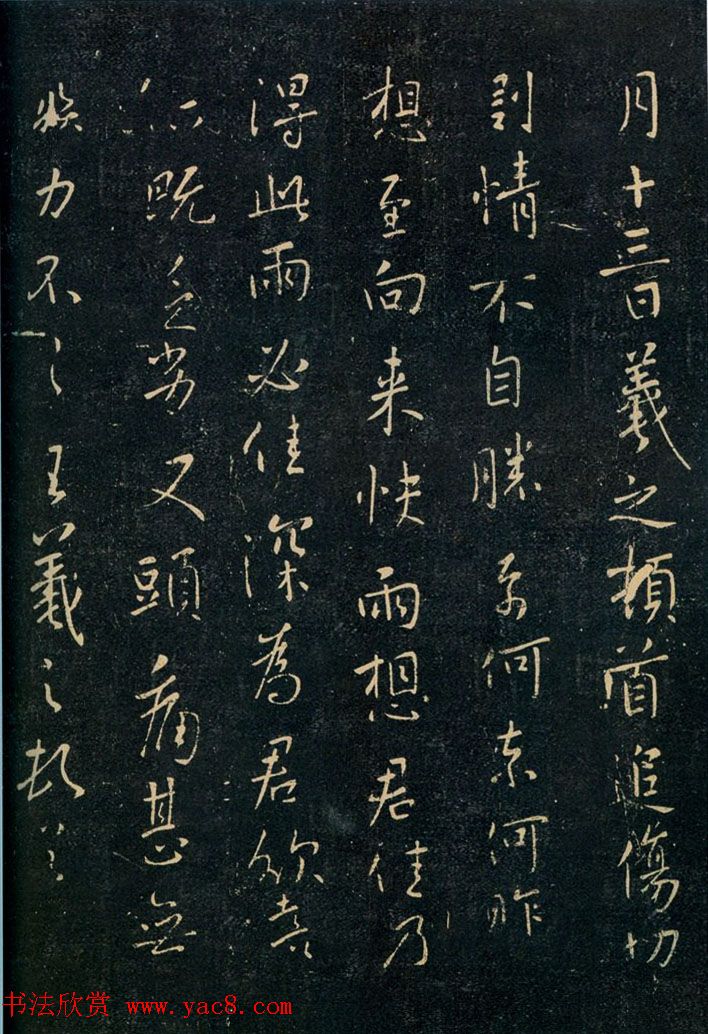 月十三日羲之頓首追傷切
剝情不自勝奈何奈何昨
想至向来快雨想君佳乃
得此雨必佳深為君欣喜
既乏劣又頭痛甚無
力不一一王羲之頓首
书法欣赏 www.yac8.com